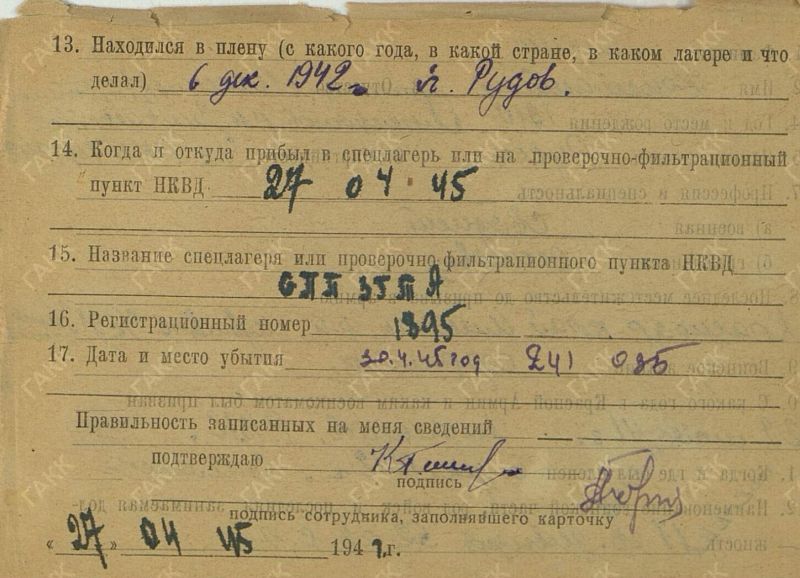 13. Находился в плену (с какого года, в какой стране, в каком лагере и что
делал) 6 дек. 1942 г. Рудов.
14. Когда и откуда прибыл в спецлагерь или на проверочно-фильтрационный
пункт НКВД 27 04 45
15. Название спецлагеря или проверочно-фильтрационного пункта НКВД
СПП 3ГТА
16. Регистрационный номер 1895
17. Дата и место убытия 30.4.45 год 241 ОЗБ
Правильность записанных на меня сведений
подтверждаю
подпись
подпись сотрудника, заполнявшего карточку
«27» 04 45 194 г.